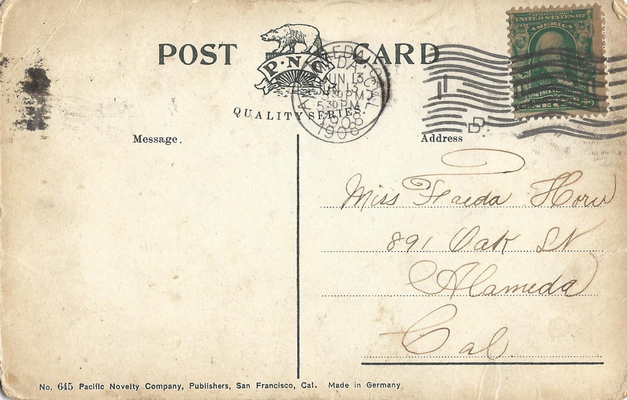 POST CARD
P.N.C.
QUALITY SERIES.
JUN 13
5 30 PM
1908
CAL.
Message.
Address
Miss Frieda Horn
891 Oak St
Alameda
Cal.
No. 645 Pacific Novelty Company, Publishers, San Francisco, Cal. Made in Germany